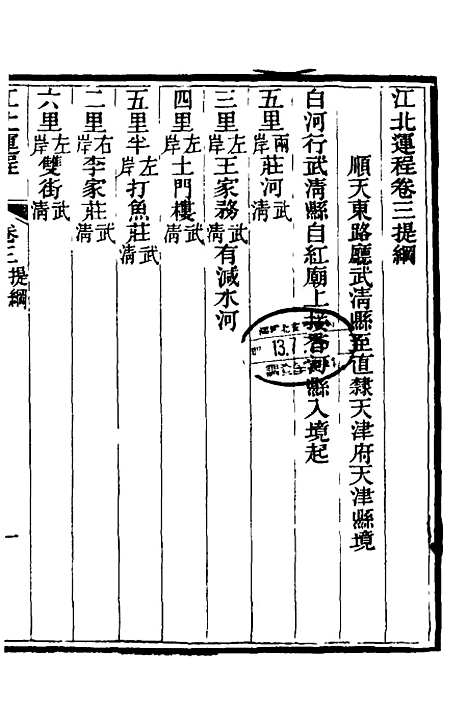 江北運程卷三提綱
順天東路廳武清縣至直隸天津府天津縣境
白河行武清縣自紅廟上接香河縣入境起
五里兩岸莊河武清
三里左岸王家務武清有減水河
四里左岸土門樓武清
五里半左岸打魚莊武清
二里右岸李家莊武清
六里左岸雙街武清
江北運程 卷三提綱 一
13.7